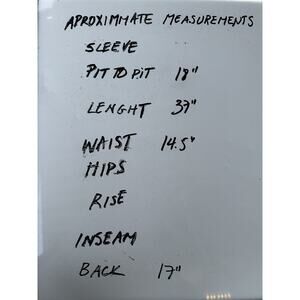 APROXIMMATE MEASUREMENTS
SLEEVE
PIT TO PIT 18"
LENGHT 37"
WAIST 14.5"
HIPS
RISE
INSEAM
BACK 17"